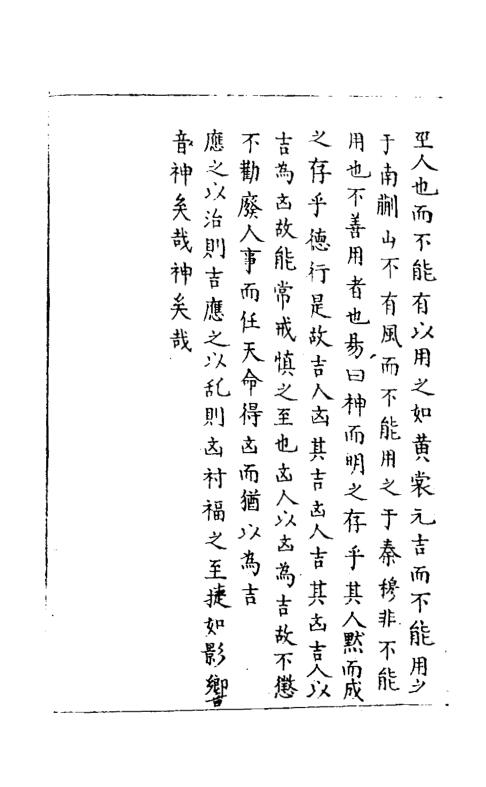 聖人也而不能有以用之如黄裳元吉而不能用之
于南蒯山不有風而不能用之于秦穆非不能
用也不善用者也易曰神而明之存乎其人黙而成
之存乎德行是故吉人凶其吉凶人吉其凶吉人以
吉為凶故能常戒慎之至也凶人以凶為吉故不懲
不勸廢人事而任天命得凶而猶以為吉
應之以治則吉應之以乱則凶禍福之至捷如影響
音神矣哉神矣哉